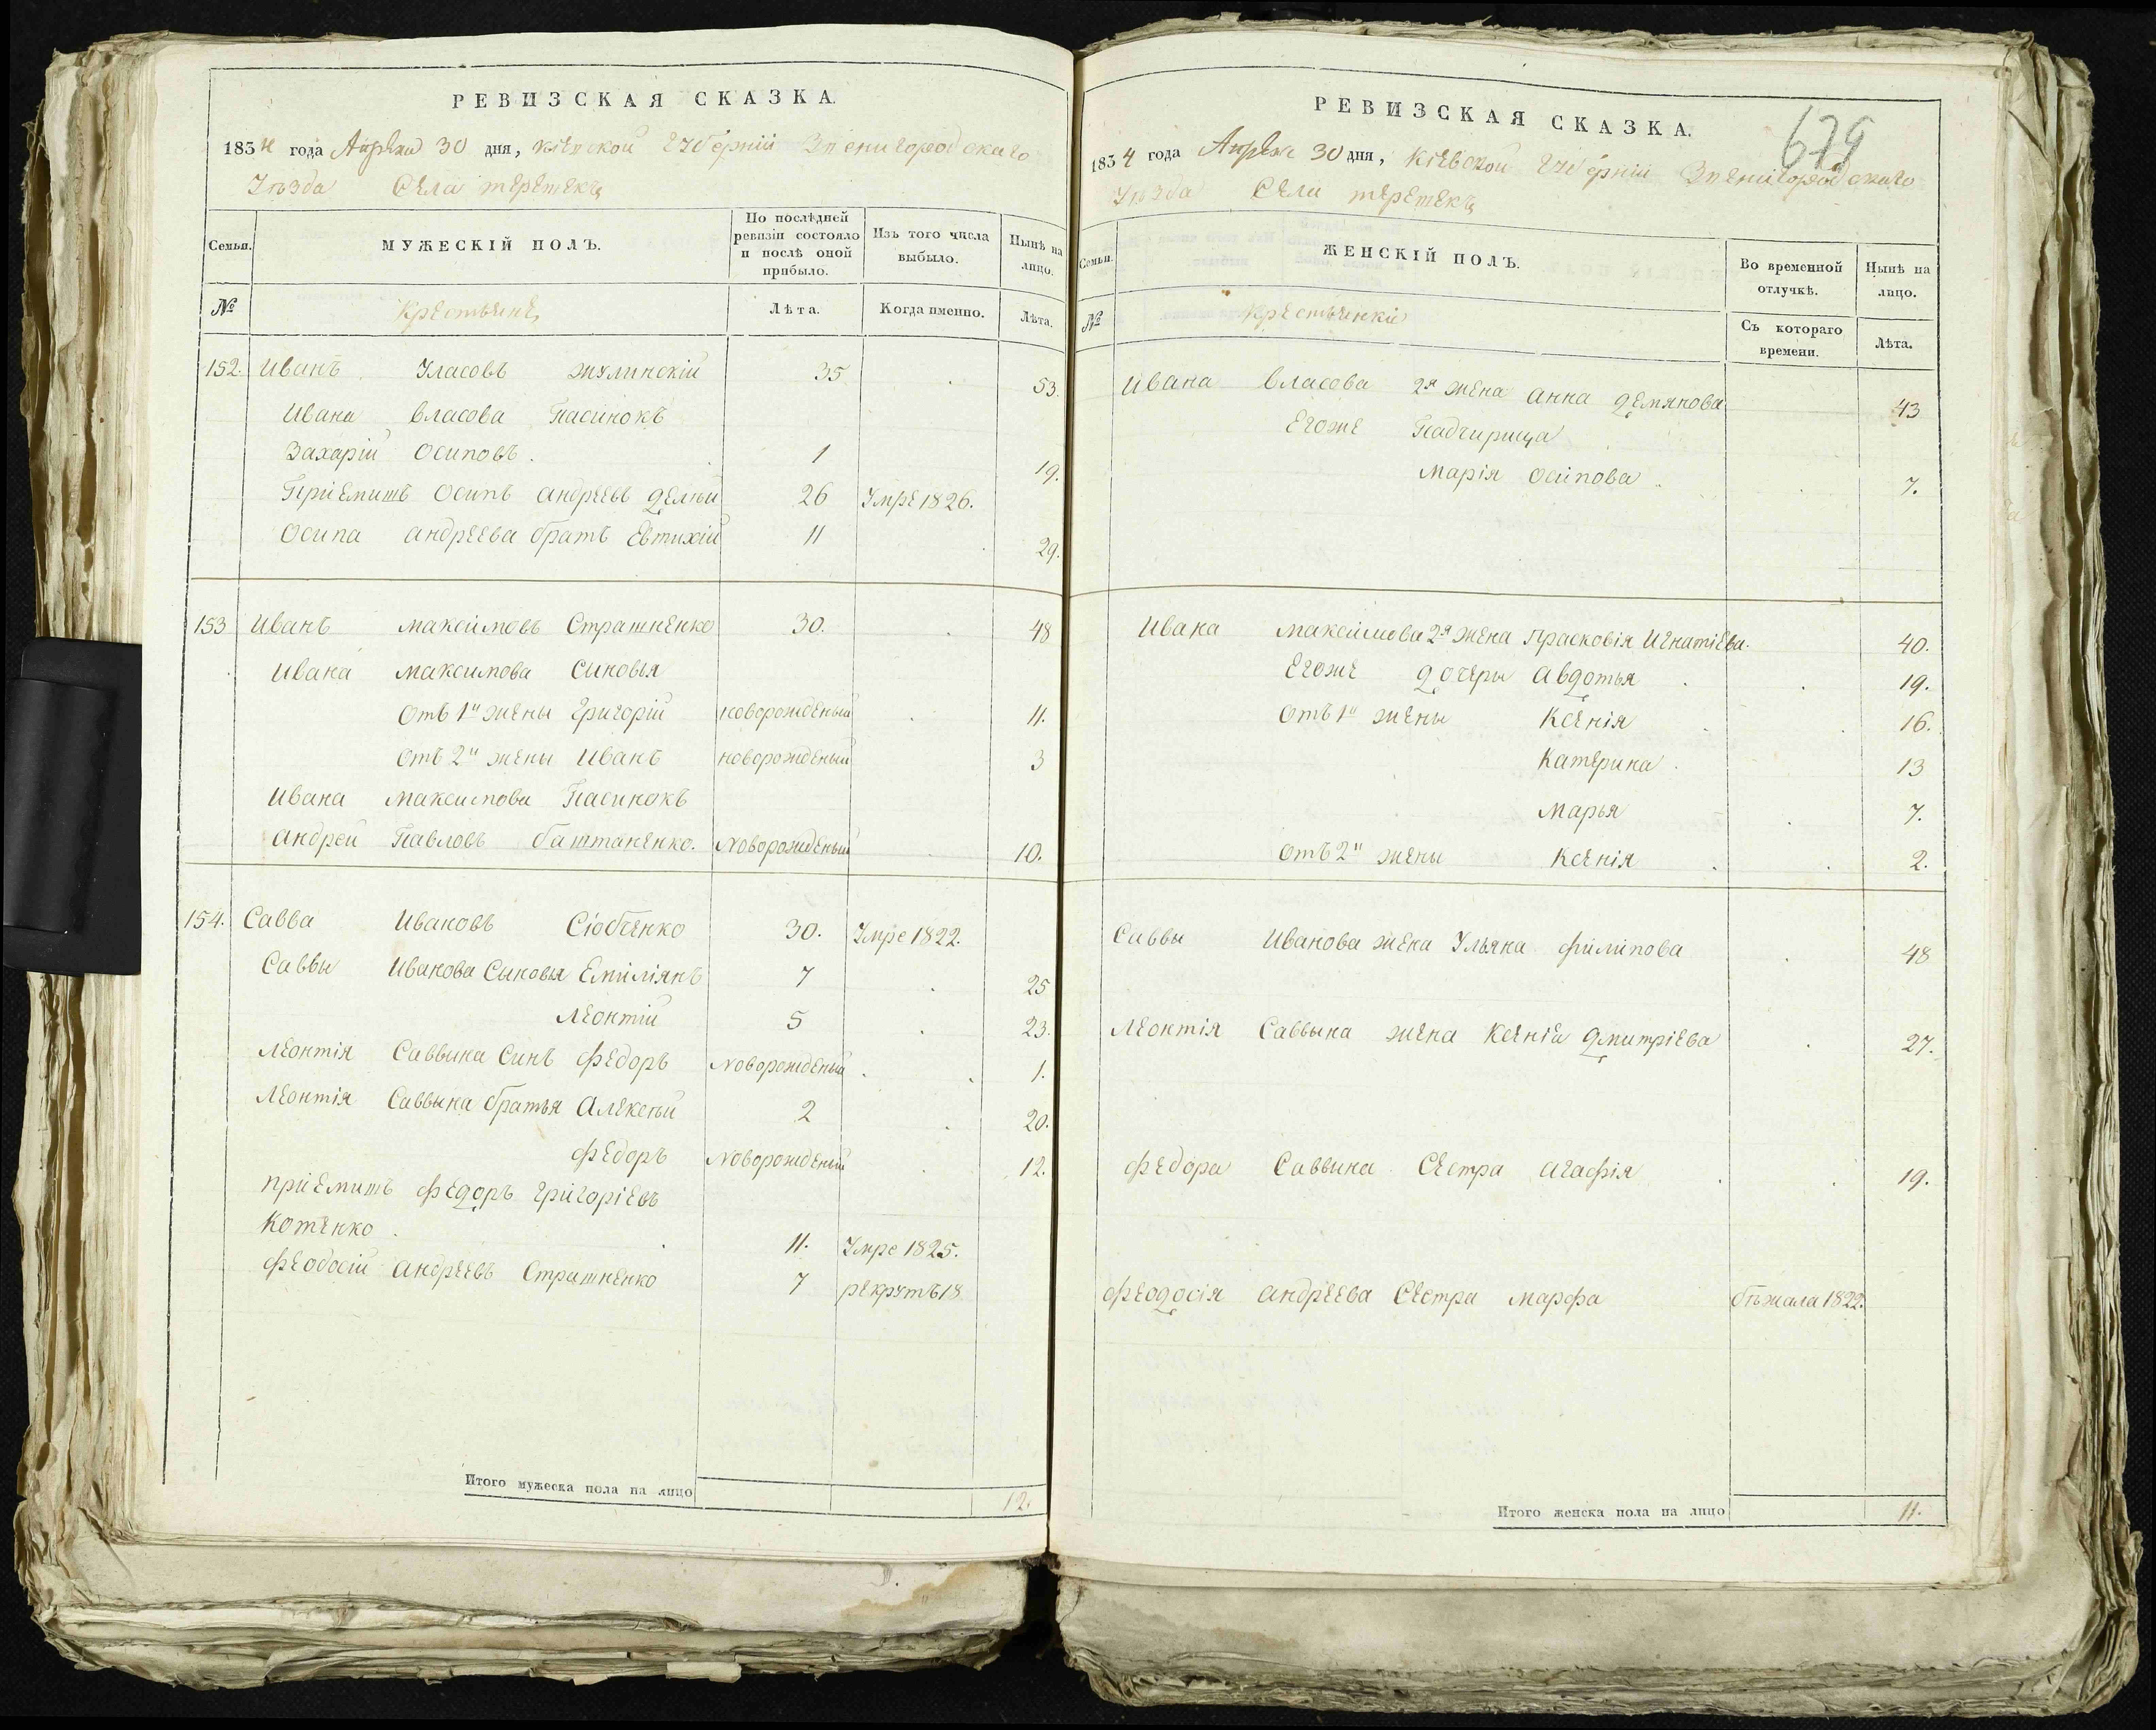 РЕВИЗСКАЯ СКАЗКА.
1834 года Апреля 30 дня, Кіевской Губерніи Звенигородскаго
Уѣзда Села
Семьи.
МУЖЕСКІЙ ПОЛЪ.
По послѣдней ревизіи состояло и послѣ оной прибыло.
Изъ того числа выбыло.
Нынѣ на лицо.
№
Крестьяне
Лѣта.
Когда именно.
Лѣта.
152. Иванъ Уласовъ Жулинскій 35 53.
Ивана Власова Пасинокъ
Захарій Осиповъ. 1 19.
Пріемишъ Осипъ Андреевъ 26 Умре 1826.
Осипа Андреева братъ Евтихій 11 29.
153 Иванъ Максимовъ Страшненко 30. 48
Ивана Максимова Сыновья
Отъ 1й жены Григорій новорожденый 11.
Отъ 2й жены Иванъ новорожденый 3
Ивана Максимова Пасинокъ
Андрей Павловъ баштаненко. Новорожденый 10.
154. Савва Ивановъ Сіобченко 30. Умре 1822.
Саввы Иванова Сыновья Емиліянъ 7 25
Леонтій 5 23.
Леонтія Саввина Синъ Федоръ Новорожденый 1.
Леонтія Саввина братья Алексѣй 2 20.
Федоръ Новорожденый 12.
Пріемишъ Федоръ Григоріевъ
Котенко. 11. Умре 1825.
Феодосій Андреевъ Страшненко 7 рекрутъ 18
Итого мужеска пола на лицо 12.
679
РЕВИЗСКАЯ СКАЗКА.
1834 года Апреля 30 дня, Кіевской Губерніи Звенигородскаго
Уѣзда Села
Семьи.
ЖЕНСКІЙ ПОЛЪ.
Во временной отлучкѣ.
Нынѣ на лицо.
№
Крестьянкіе
Съ котораго времени.
Лѣта.
Ивана Власова 2я жена Анна Демянова 43
Егоже Падчирица
Марія Осипова. 7.
Ивана Максимова 2я жена Прасковія Игнатіева. 40.
Егоже дочеры Авдотья 19.
Отъ 1й жены Ксенія 16.
Катерина. 13
Марья 7.
Отъ 2й жены Ксенія 2.
Саввы Иванова жена Ульяна филипова 48
Леонтія Саввына жена Ксенія Дмитріева 27.
Федора Саввина Сестра Агафія 19.
Феодосія Андреева Сестра Марфа бѣжала 1822.
Итого женска пола на лицо 11.